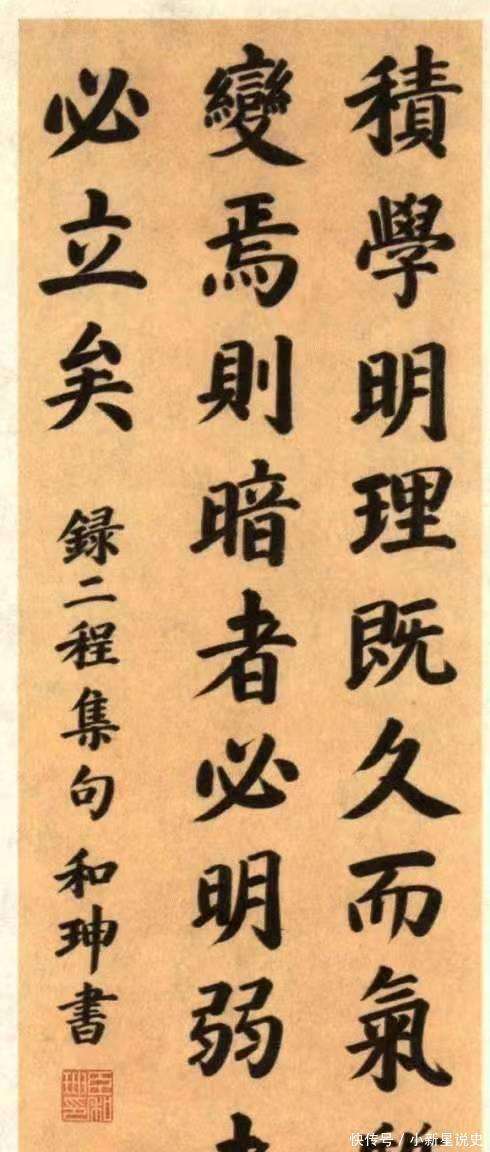 積學明理既久而氣
變焉則暗者必明弱
必立矣
録二程集句 和珅書
快传号 / 小新星说史